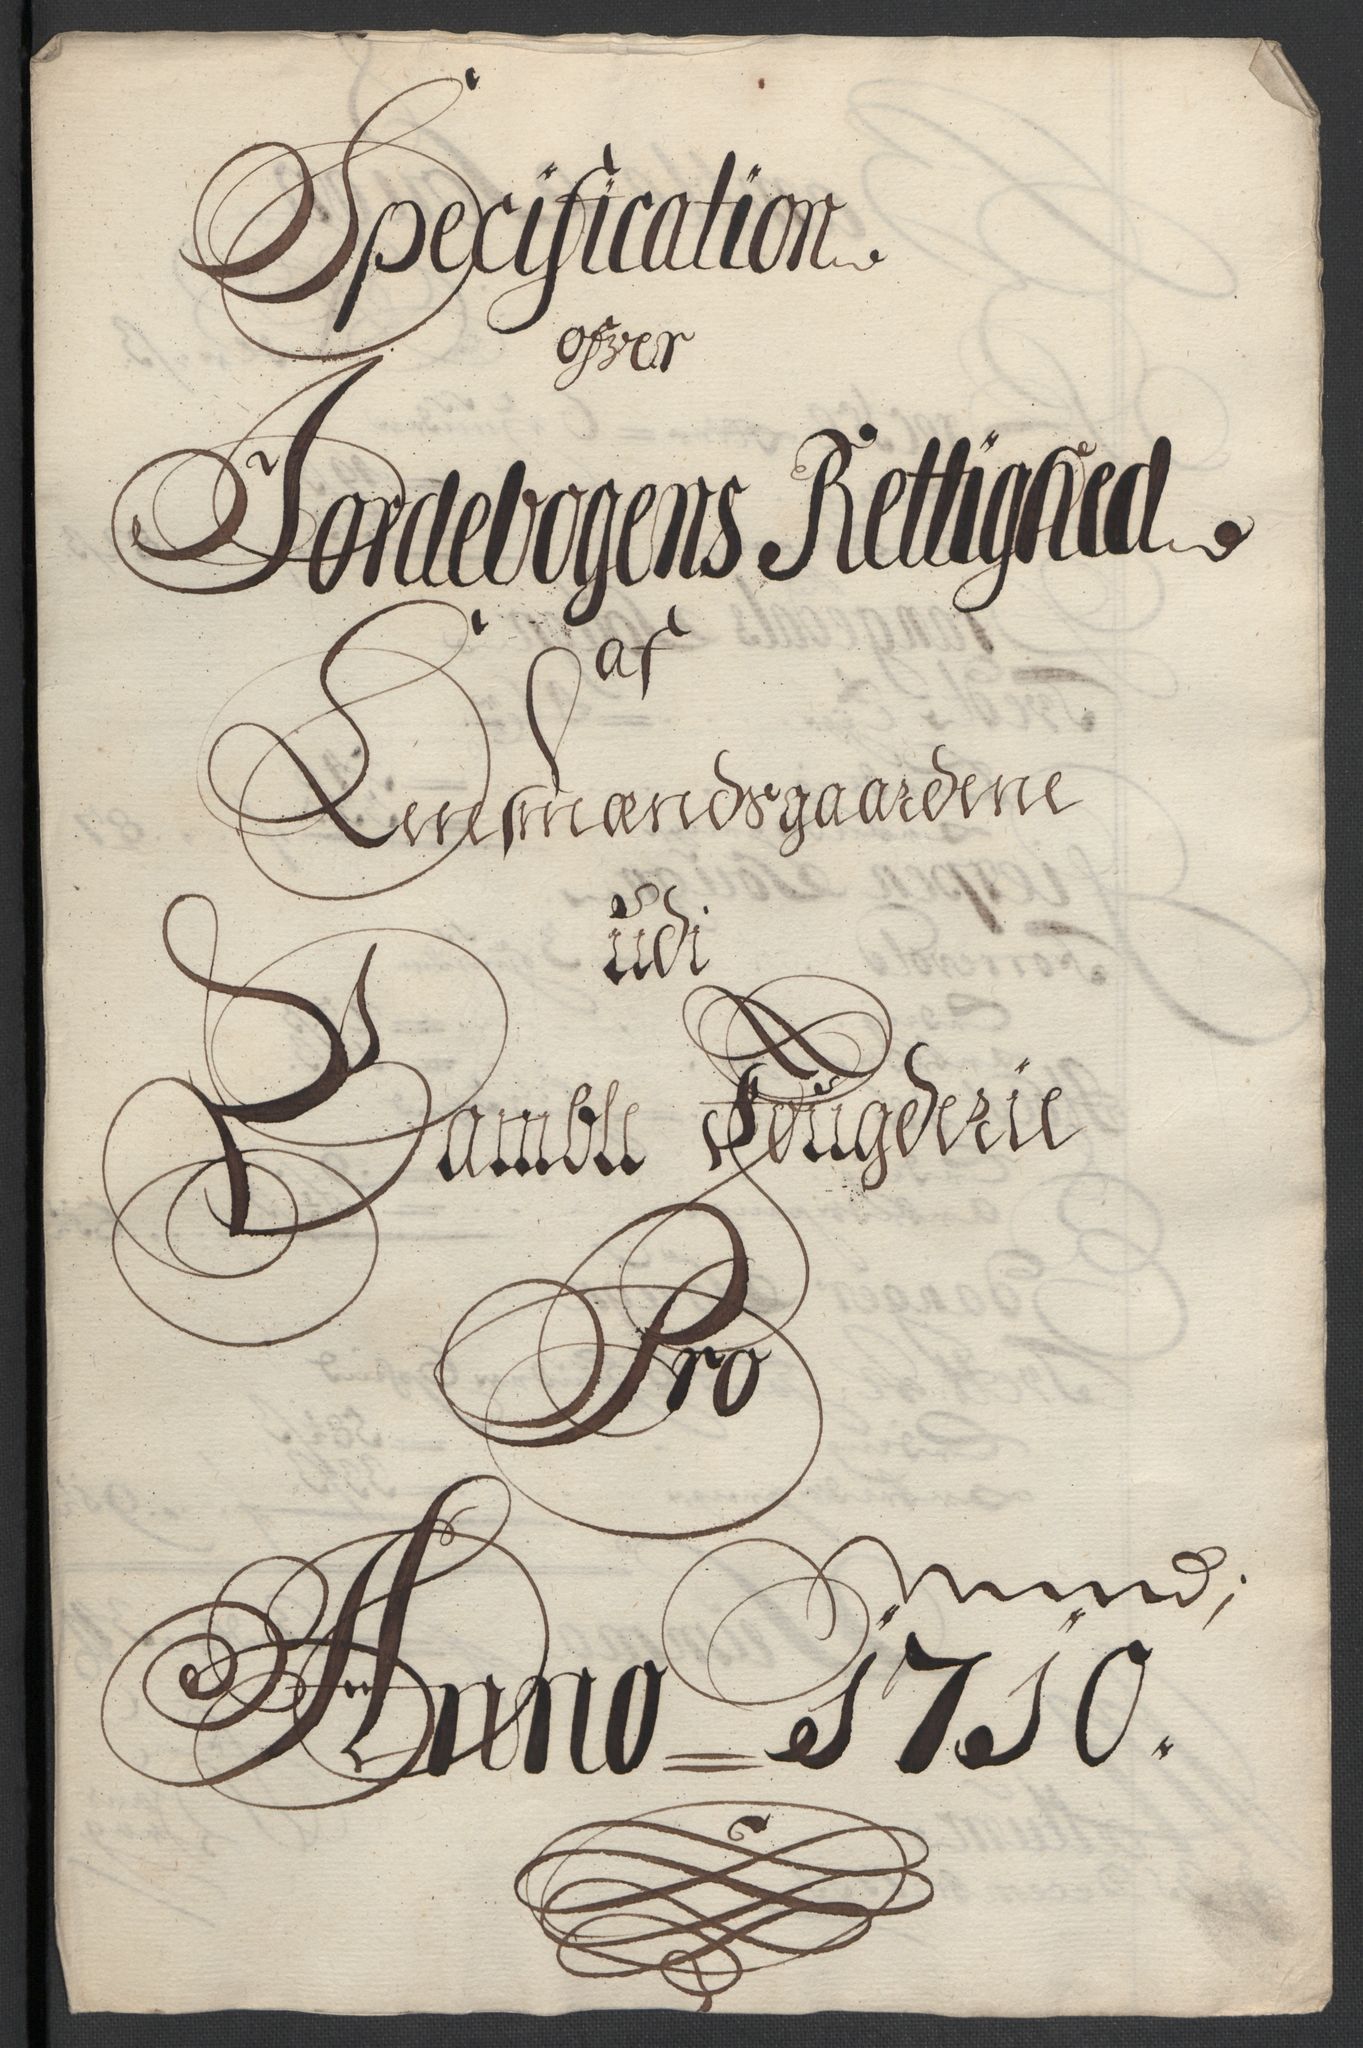 Specification
ofver
Jordebogens Rettighed
af
Lensmændsgaardene
udi
Bamble Fougderie
Pro
Anno = 1710.